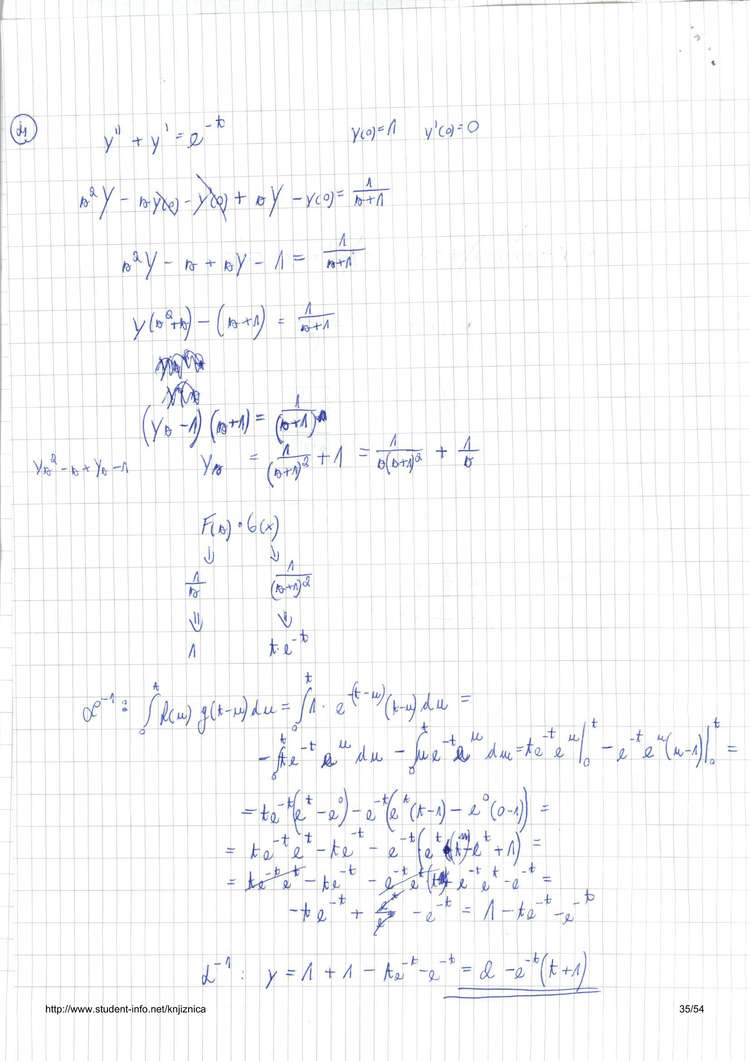 21
y'' + y' = e^{-t} y(0)=1 y'(0)=0
s²Y - sy(0) - y'(0) + sY - y(0) = 1/(s+1)
s²Y - s + sY - 1 = 1/(s+1)
Y(s²+s) - (s+1) = 1/(s+1)
(Ys - 1)(s+1) = 1/(s+1)
Ys² - s + Ys - 1 Ys = 1/(s+1)² + 1 = 1/(s(s+1)²) + 1/s
F(s) · G(x)
⇓ ⇓
1/s 1/(s+1)²
⇓ ⇓
1 t·e^{-t}
L^{-1}: ∫₀^t f(u) g(t-u) du = ∫₀^t 1·e^{-(t-u)} (t-u) du =
- ∫₀^t te^{-t} e^u du - ∫₀^t ue^{-t} e^u du = te^{-t}e^u |₀^t - e^{-t}e^u(u-1)|₀^t =
= te^{-t}(e^t - e^0) - e^{-t}(e^t(t-1) - e^0(0-1)) =
= te^{-t}e^t - te^{-t} - e^{-t}(e^t(t) - e^t + 1) =
= te^{-t}e^t - te^{-t} - e^{-t}e^t(t) + e^{-t}e^t - e^{-t} =
- te^{-t} + e^t/e^t - e^{-t} = 1 - te^{-t} - e^{-t}
L^{-1}: y = 1 + 1 - te^{-t} - e^{-t} = 2 - e^{-t}(t+1)
http://www.student-info.net/knjiznica 35/54